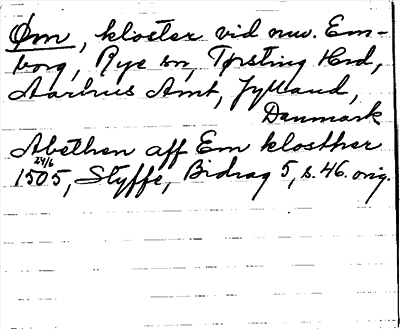 Øm, kloster vid nuv. Em-
borg, Rye sn, Tørsting Hrd,
Aarhus Amt, Jylland,
Danmark
Abethen aff Em closther
24/6
1505, Styffe, Bidrag 5, s. 46. orig.